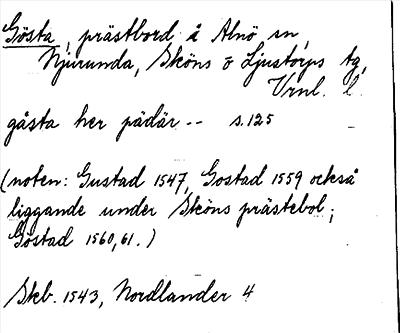 Gösta, prästbord å Alnö sn,
Njurunda, Sköns o Ljustorps tg,
Vrnl. l.
gästa her pädär -- s.125
(noten: Gustad 1547, Gostad 1559 också
liggande under Sköns prästebol;
Göstad 1560, 61.)
Skb. 1543, Nordlander 4